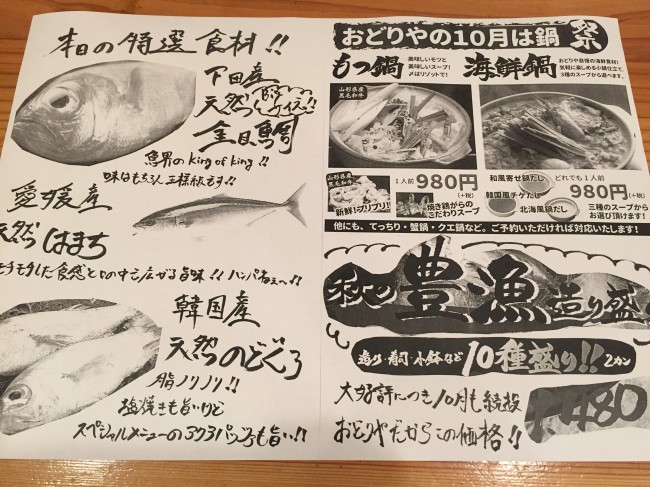 本日の特選食材!!
下田産
天然
金目鯛
魚界のKing of King!!
味はもちろん王様級です!!
愛媛産
天然はまち
もちもちした食感と口の中に広がる旨味!!ハンパねぇ〜!!
韓国産
天然のどぐろ
脂ノリノリ!!
塩焼きも旨いけど
も旨い!!
おどりやの10月は鍋祭
もつ鍋
美味しいモツと
美味しいスープ!
〆はリゾットで!
海鮮鍋
おどりや自慢の海鮮食材!
気軽に楽しめる小鍋仕立て。
3種のスープから選べます。
山形県産
黒毛和牛
山形県産
黒毛和牛
新鮮!プリプリ!
1人前 980円(+税)
焼き鶏がらの
こだわりスープ
和風寄せ鍋だし
韓国風チゲだし
北海風鍋だし
どれでも1人前
980円(+税)
三種のスープから
お選び頂けます!
他にも、てっちり・蟹鍋・クエ鍋など。ご予約いただければ対応いたします!
秋の豊漁造り盛
造り・寿司・小鉢など10種盛り!!2カン
大好評につき10月も続投
おどりやだからこの価格!!
1,480